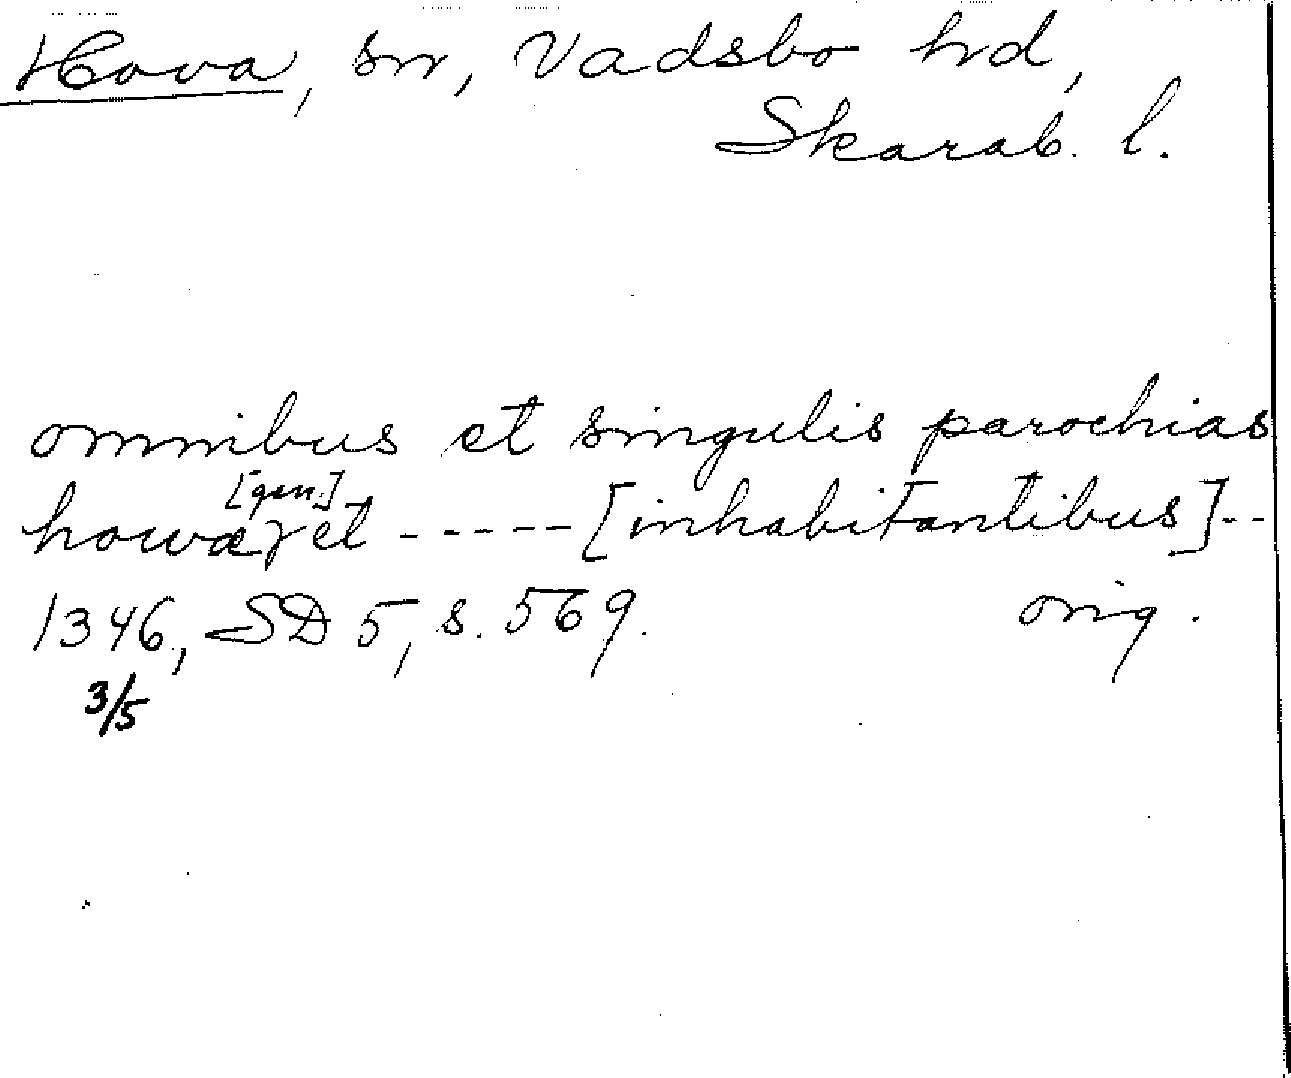 Hova, sn, Vadsbo hd,
Skarab. l.
omnibus et singulis parochias
[gen.]
howæ et ---- [inhabitantibus] --
1346, SD 5, s. 569. orig.
3/5